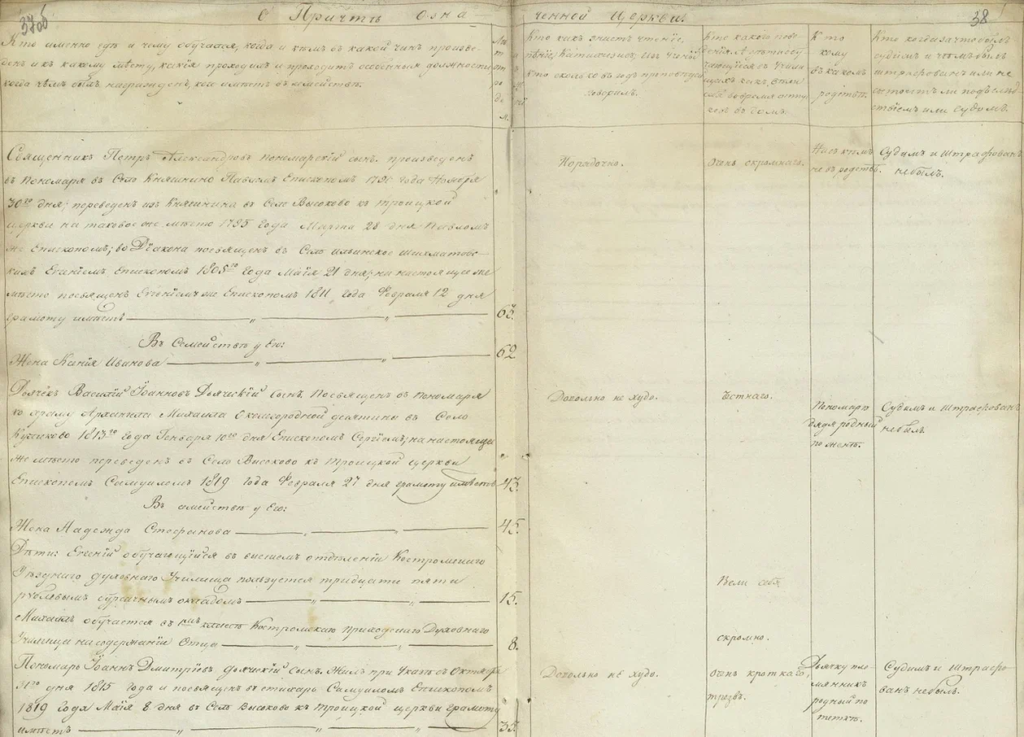 37об
38
О Причтѣ озна
ченной Церкви.
Кто именно гдѣ и чему обучался, когда и кѣмъ въ какой чинъ произве-
денъ и къ какому мѣсту, какія проходилъ и проходитъ особенныя должности
когда чѣмъ былъ награжденъ, кого имѣетъ въ семействѣ.
Кто какъ знаетъ чтеніе,
пѣніе, Катихизисъ,
кто сколько въ годъ проповѣдей
говорилъ.
Кто какого пов
Къ то
кому
въ какомъ
родствѣ.
Кто когда за что былъ
судимъ и чѣмъ былъ
штрафованъ или не
состоитъ ли подъ слѣд
ствіемъ или судомъ.
Священникъ Петръ Александровъ пономарскій сынъ, произведенъ
въ Пономаря въ Село Княжнино Павломъ Епископомъ года Ноября
30го дня; переведенъ изъ Княжнина въ Село Высоково къ Троицкой
церкви на таковое же мѣсто 1795 года Марта 28 дня Павломъ
же Епископомъ; во Діакона посвященъ въ Село Ильинское
Евгеніемъ Епископомъ 1805го года Маія 21 дня; на настоящее же
мѣсто посвященъ Евгеніемъ же Епископомъ 1811 года Февраля 12 дня
грамоту имѣетъ
Порядочно.
Очень скромнаго.
Ни съ кѣмъ
не въ родствѣ.
Судимъ и штрафованъ
небылъ.
Въ Семействѣ у Его:
Жена Ксенія Иванова 62
Дьячёкъ Василій Іоанновъ Дьяческій сынъ посвященъ въ Пономаря
къ храму Архангела Михаила десятины въ Село
1813го года Генваря 10го дня Епископомъ Сергіемъ; на настоящее
же мѣсто переведенъ въ Село Высоково къ Троицкой церкви
Епископомъ Самуиломъ 1819 года Февраля 27 дня грамоту имѣетъ 43
Довольно не худо.
Честнаго.
Пономарь
дядя родный
по женѣ.
Судимъ и штрафованъ
небылъ
Въ семействѣ у Его:
Жена Надежда Стефанова 45
Дѣти: Евгеній обучающійся въ высшемъ отдѣленіи Костромскаго
Уѣзднаго духовнаго Училища пользуется тридцати пяти
рублевымъ окладомъ 15.
Вели себя
Михаилъ обучается въ классѣ Костромскаго приходскаго Духовнаго
Училища на содержаніи Отца 8.
скромно.
Пономарь Іоаннъ Дмитріевъ дьяческій сынъ. Жилъ при
дня 1815 года и посвященъ въ стихарь Самуиломъ Епископомъ
1819 года Маія 8 дня въ Село Высоково къ Троицкой церкви грамоту
имѣетъ
Довольно не худо.
Очень кроткаго
трезвъ.
Дьячку пле
мянникъ
родный по
теткѣ.
Судимъ и штрафо
ванъ небылъ.